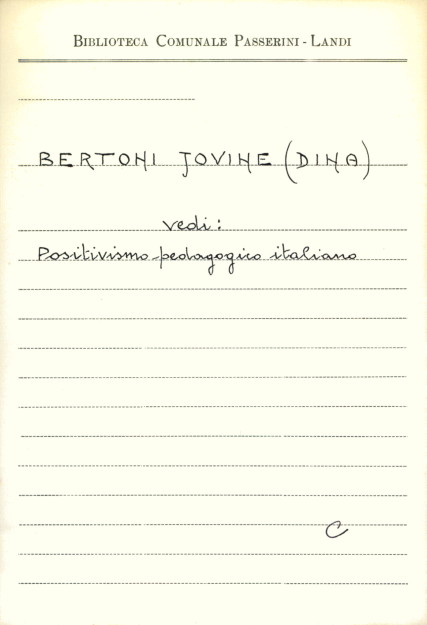 BIBLIOTECA COMUNALE PASSERINI - LANDI
BERTONI JOVINE (DINA)
vedi:
Positivismo pedagogico italiano
C